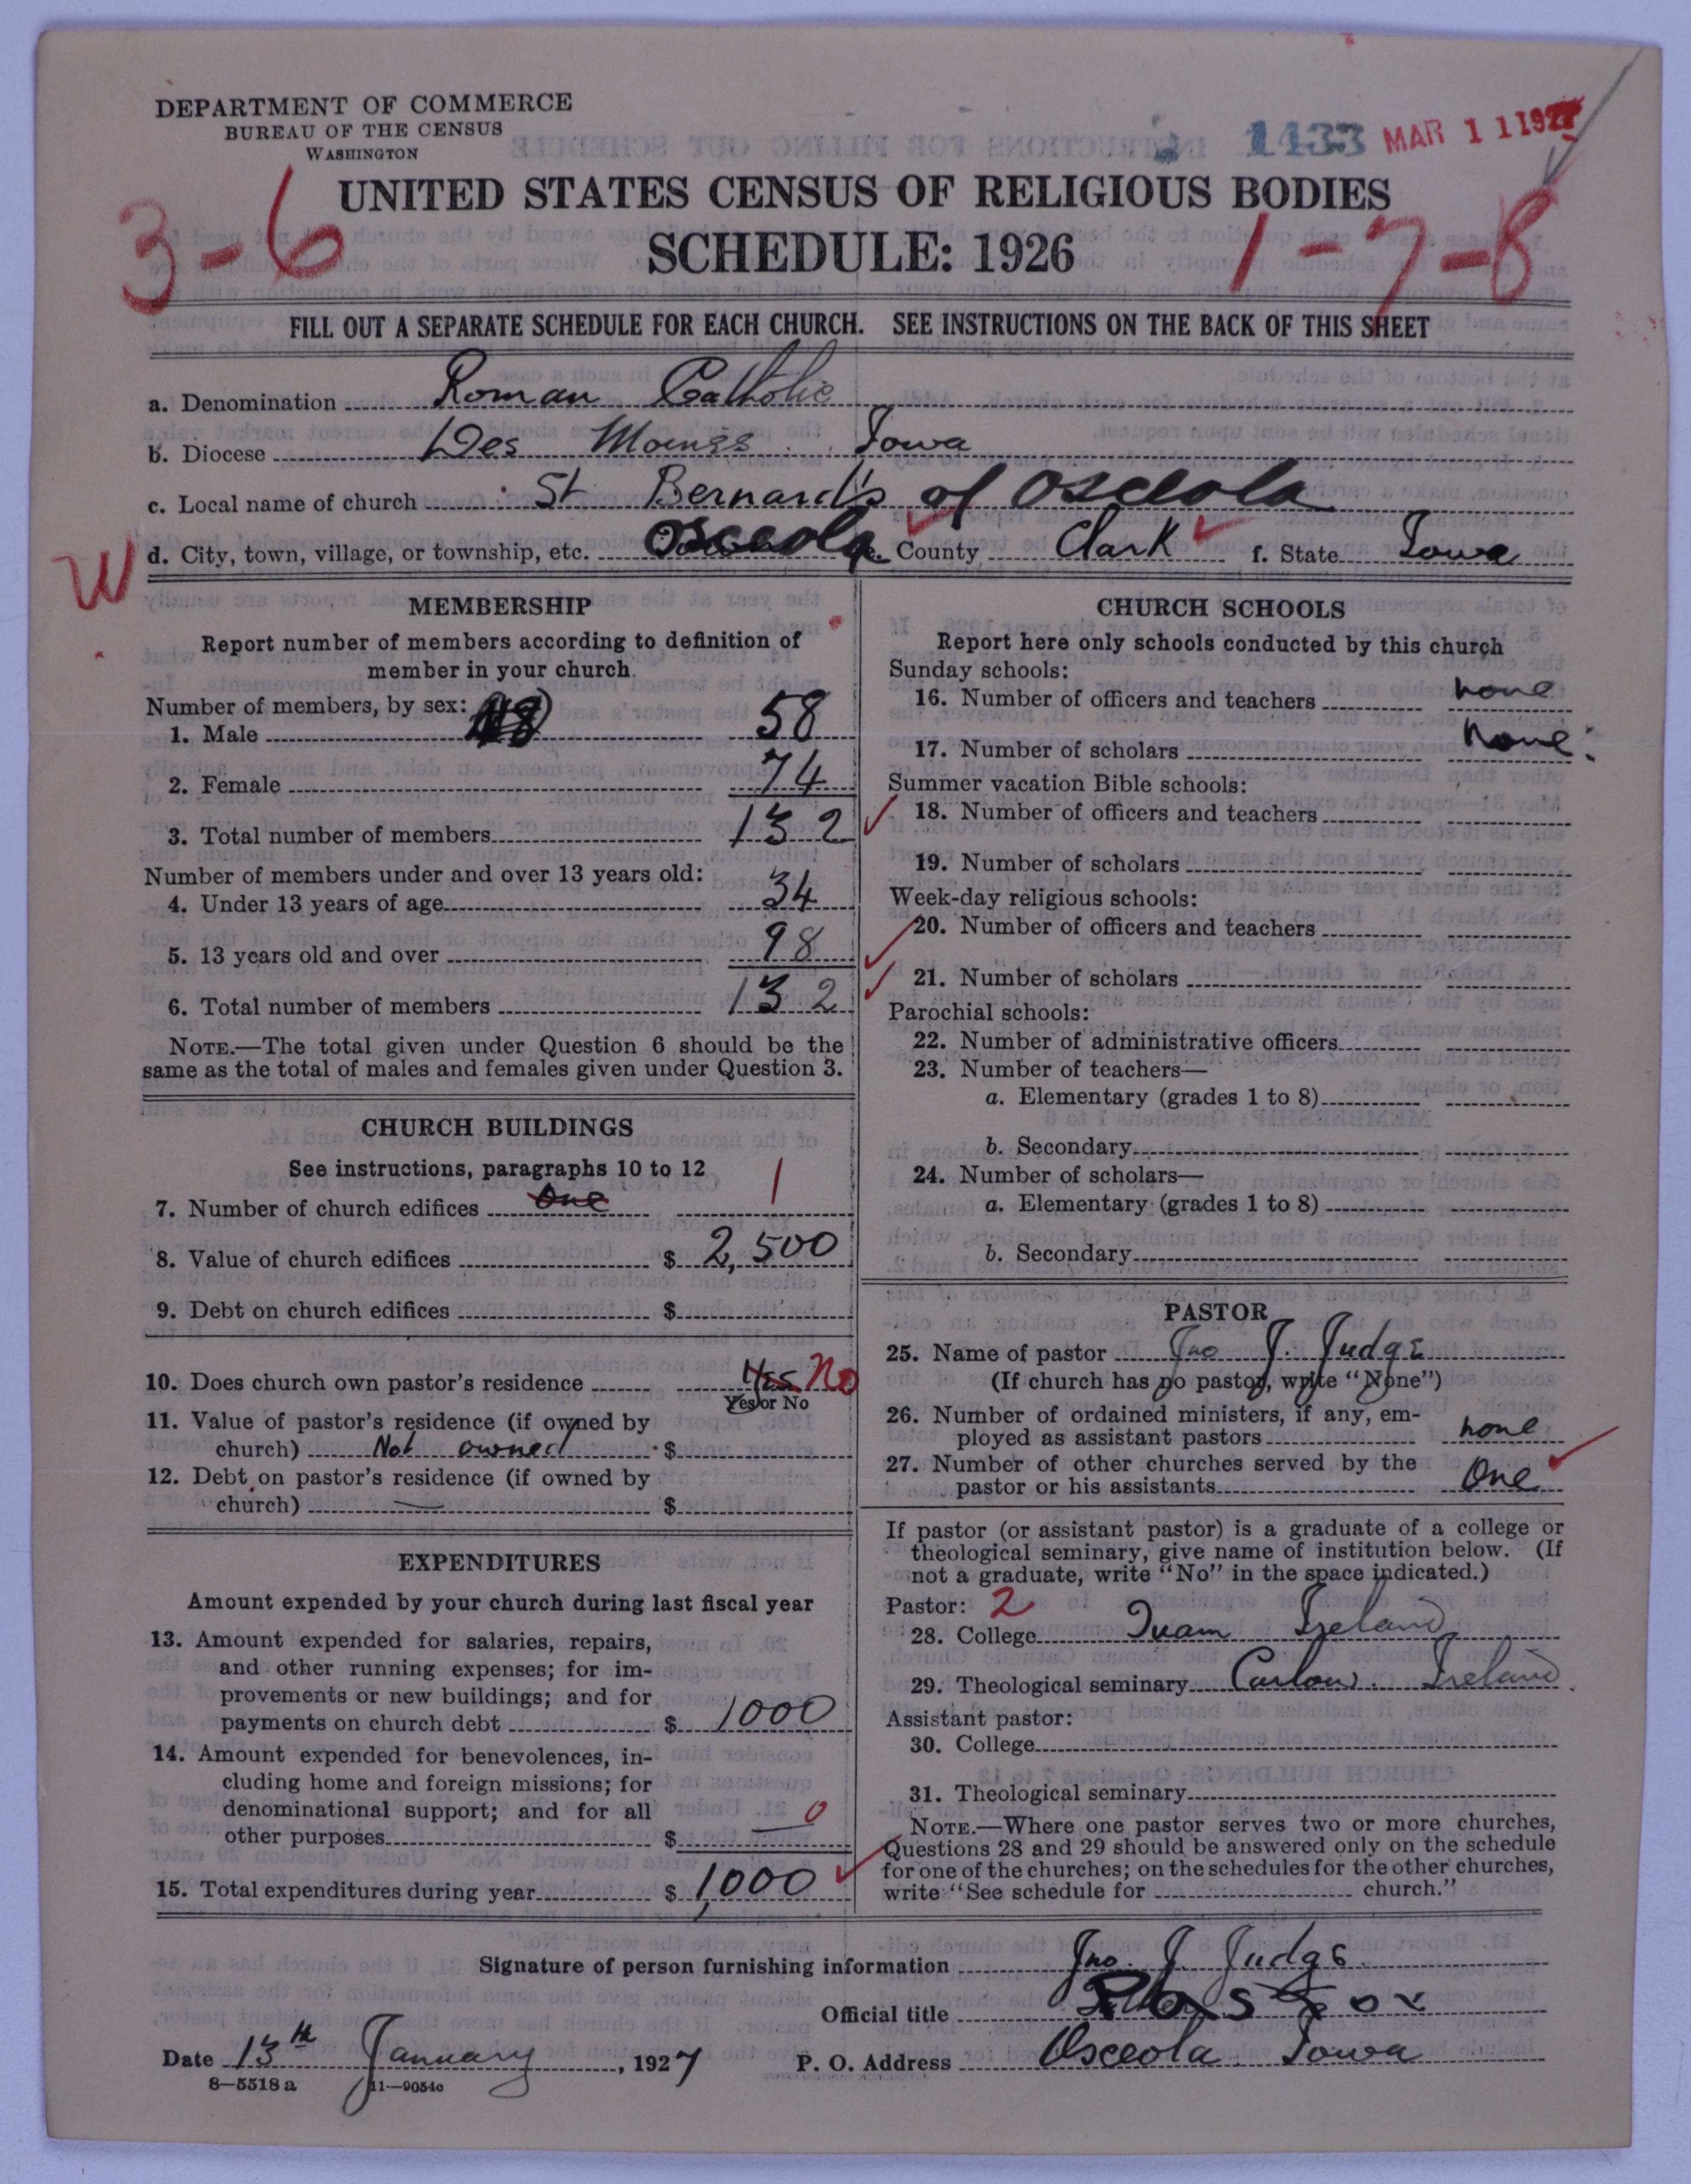 DEPARTMENT OF COMMERCE
BUREAU OF THE CENSUS
WASHINGTON
1433 MAR 11 1927
UNITED STATES CENSUS OF RELIGIOUS BODIES
3-6 SCHEDULE: 1926 1-7-8
FILL OUT A SEPARATE SCHEDULE FOR EACH CHURCH. SEE INSTRUCTIONS ON THE BACK OF THIS SHEET
a. Denomination Roman Catholic
b. Diocese Des Moines Iowa
c. Local name of church St Bernard's of Osceola
W d. City, town, village, or township, etc. Osceola e. County Clark f. State Iowa
MEMBERSHIP
Report number of members according to definition of
member in your church
Number of members, by sex:
1. Male 58
2. Female 74
3. Total number of members 132
Number of members under and over 13 years old:
4. Under 13 years of age 34
5. 13 years old and over 98
6. Total number of members 132
NOTE.—The total given under Question 6 should be the
same as the total of males and females given under Question 3.
CHURCH BUILDINGS
See instructions, paragraphs 10 to 12
7. Number of church edifices One 1
8. Value of church edifices $ 2,500
9. Debt on church edifices $
10. Does church own pastor's residence Yes No
Yes or No
11. Value of pastor's residence (if owned by
church) Not owned $
12. Debt on pastor's residence (if owned by
church) — $
EXPENDITURES
Amount expended by your church during last fiscal year
13. Amount expended for salaries, repairs,
and other running expenses; for im-
provements or new buildings; and for
payments on church debt $ 1000
14. Amount expended for benevolences, in-
cluding home and foreign missions; for
denominational support; and for all
other purposes $ — 0
15. Total expenditures during year $ 1,000
CHURCH SCHOOLS
Report here only schools conducted by this church
Sunday schools:
16. Number of officers and teachers none
17. Number of scholars none
Summer vacation Bible schools:
18. Number of officers and teachers
19. Number of scholars
Week-day religious schools:
20. Number of officers and teachers
21. Number of scholars
Parochial schools:
22. Number of administrative officers
23. Number of teachers—
a. Elementary (grades 1 to 8)
b. Secondary
24. Number of scholars—
a. Elementary (grades 1 to 8)
b. Secondary
PASTOR
25. Name of pastor Jno J. Judge
(If church has no pastor, write "None")
26. Number of ordained ministers, if any, em-
ployed as assistant pastors none
27. Number of other churches served by the
pastor or his assistants One
If pastor (or assistant pastor) is a graduate of a college or
theological seminary, give name of institution below. (If
not a graduate, write "No" in the space indicated.)
Pastor: 2
28. College Tuam Ireland
29. Theological seminary Carlow. Ireland.
Assistant pastor:
30. College
31. Theological seminary
NOTE.—Where one pastor serves two or more churches,
Questions 28 and 29 should be answered only on the schedule
for one of the churches; on the schedules for the other churches,
write "See schedule for church."
Signature of person furnishing information Jno. J. Judge
Official title Pastor
Date 13th January, 1927 P. O. Address Osceola Iowa
8—5518 a 11—9054c